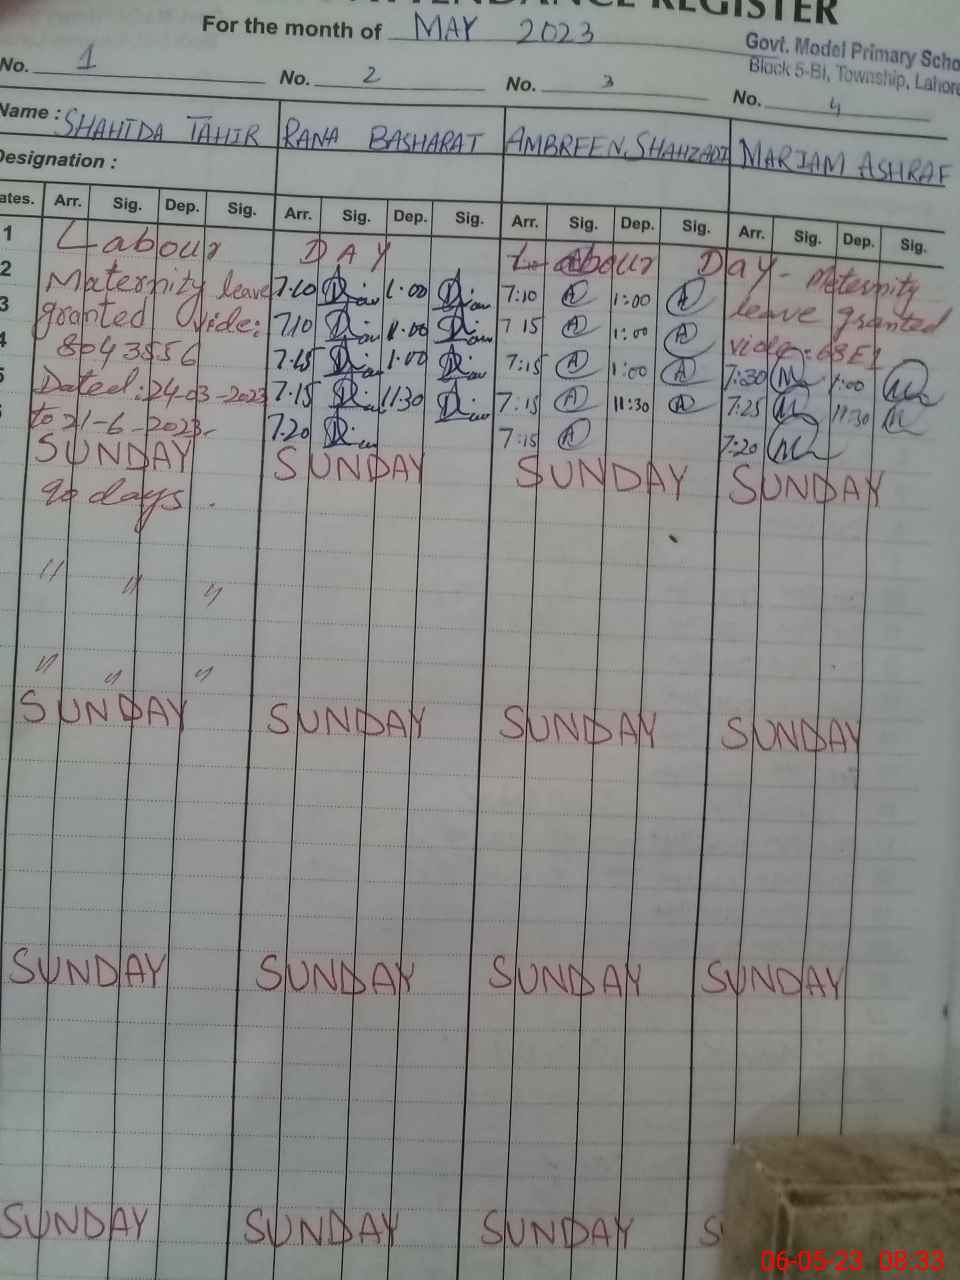 ATTENDANCE REGISTER
For the month of MAY 2023
Govt. Model Primary Scho
Block 5-BI, Township, Lahore
No. 1 No. 2 No. 3 No. 4
Name : SHAHIDA TAHIR RANA BASHARAT AMBREEN SHAHZADI MARIAM ASHRAF
Designation :
ates. Arr. Sig. Dep. Sig. Arr. Sig. Dep. Sig. Arr. Sig. Dep. Sig. Arr. Sig. Dep. Sig.
1 Labour DAY Labour Day - Meternity
2 Maternity leave 7:10 1:00 7:10 1:00 leave granted
3 granted vide: 7:10 1:00 7 15 1:00 vide
4 8043556 7:15 1:00 7:15 1:00 7:30 1:00
5 Dated: 24-03-2023 7:15 11:30 7:15 11:30 7:25 11:30
to 21-6-2023- 7:20 7:15 7:20
SUNDAY SUNDAY SUNDAY SUNDAY
90 days.
" " "
" " "
SUNDAY SUNDAY SUNDAY SUNDAY
SUNDAY SUNDAY SUNDAY SUNDAY
SUNDAY SUNDAY SUNDAY S
06-05-23 08:33